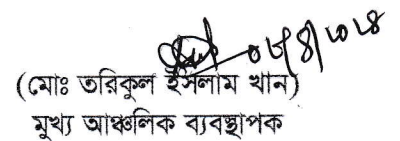 ০৮/৪/২০২৪
(মোঃ তরিকুল ইসলাম খান)
মুখ্য আঞ্চলিক ব্যবস্থাপক